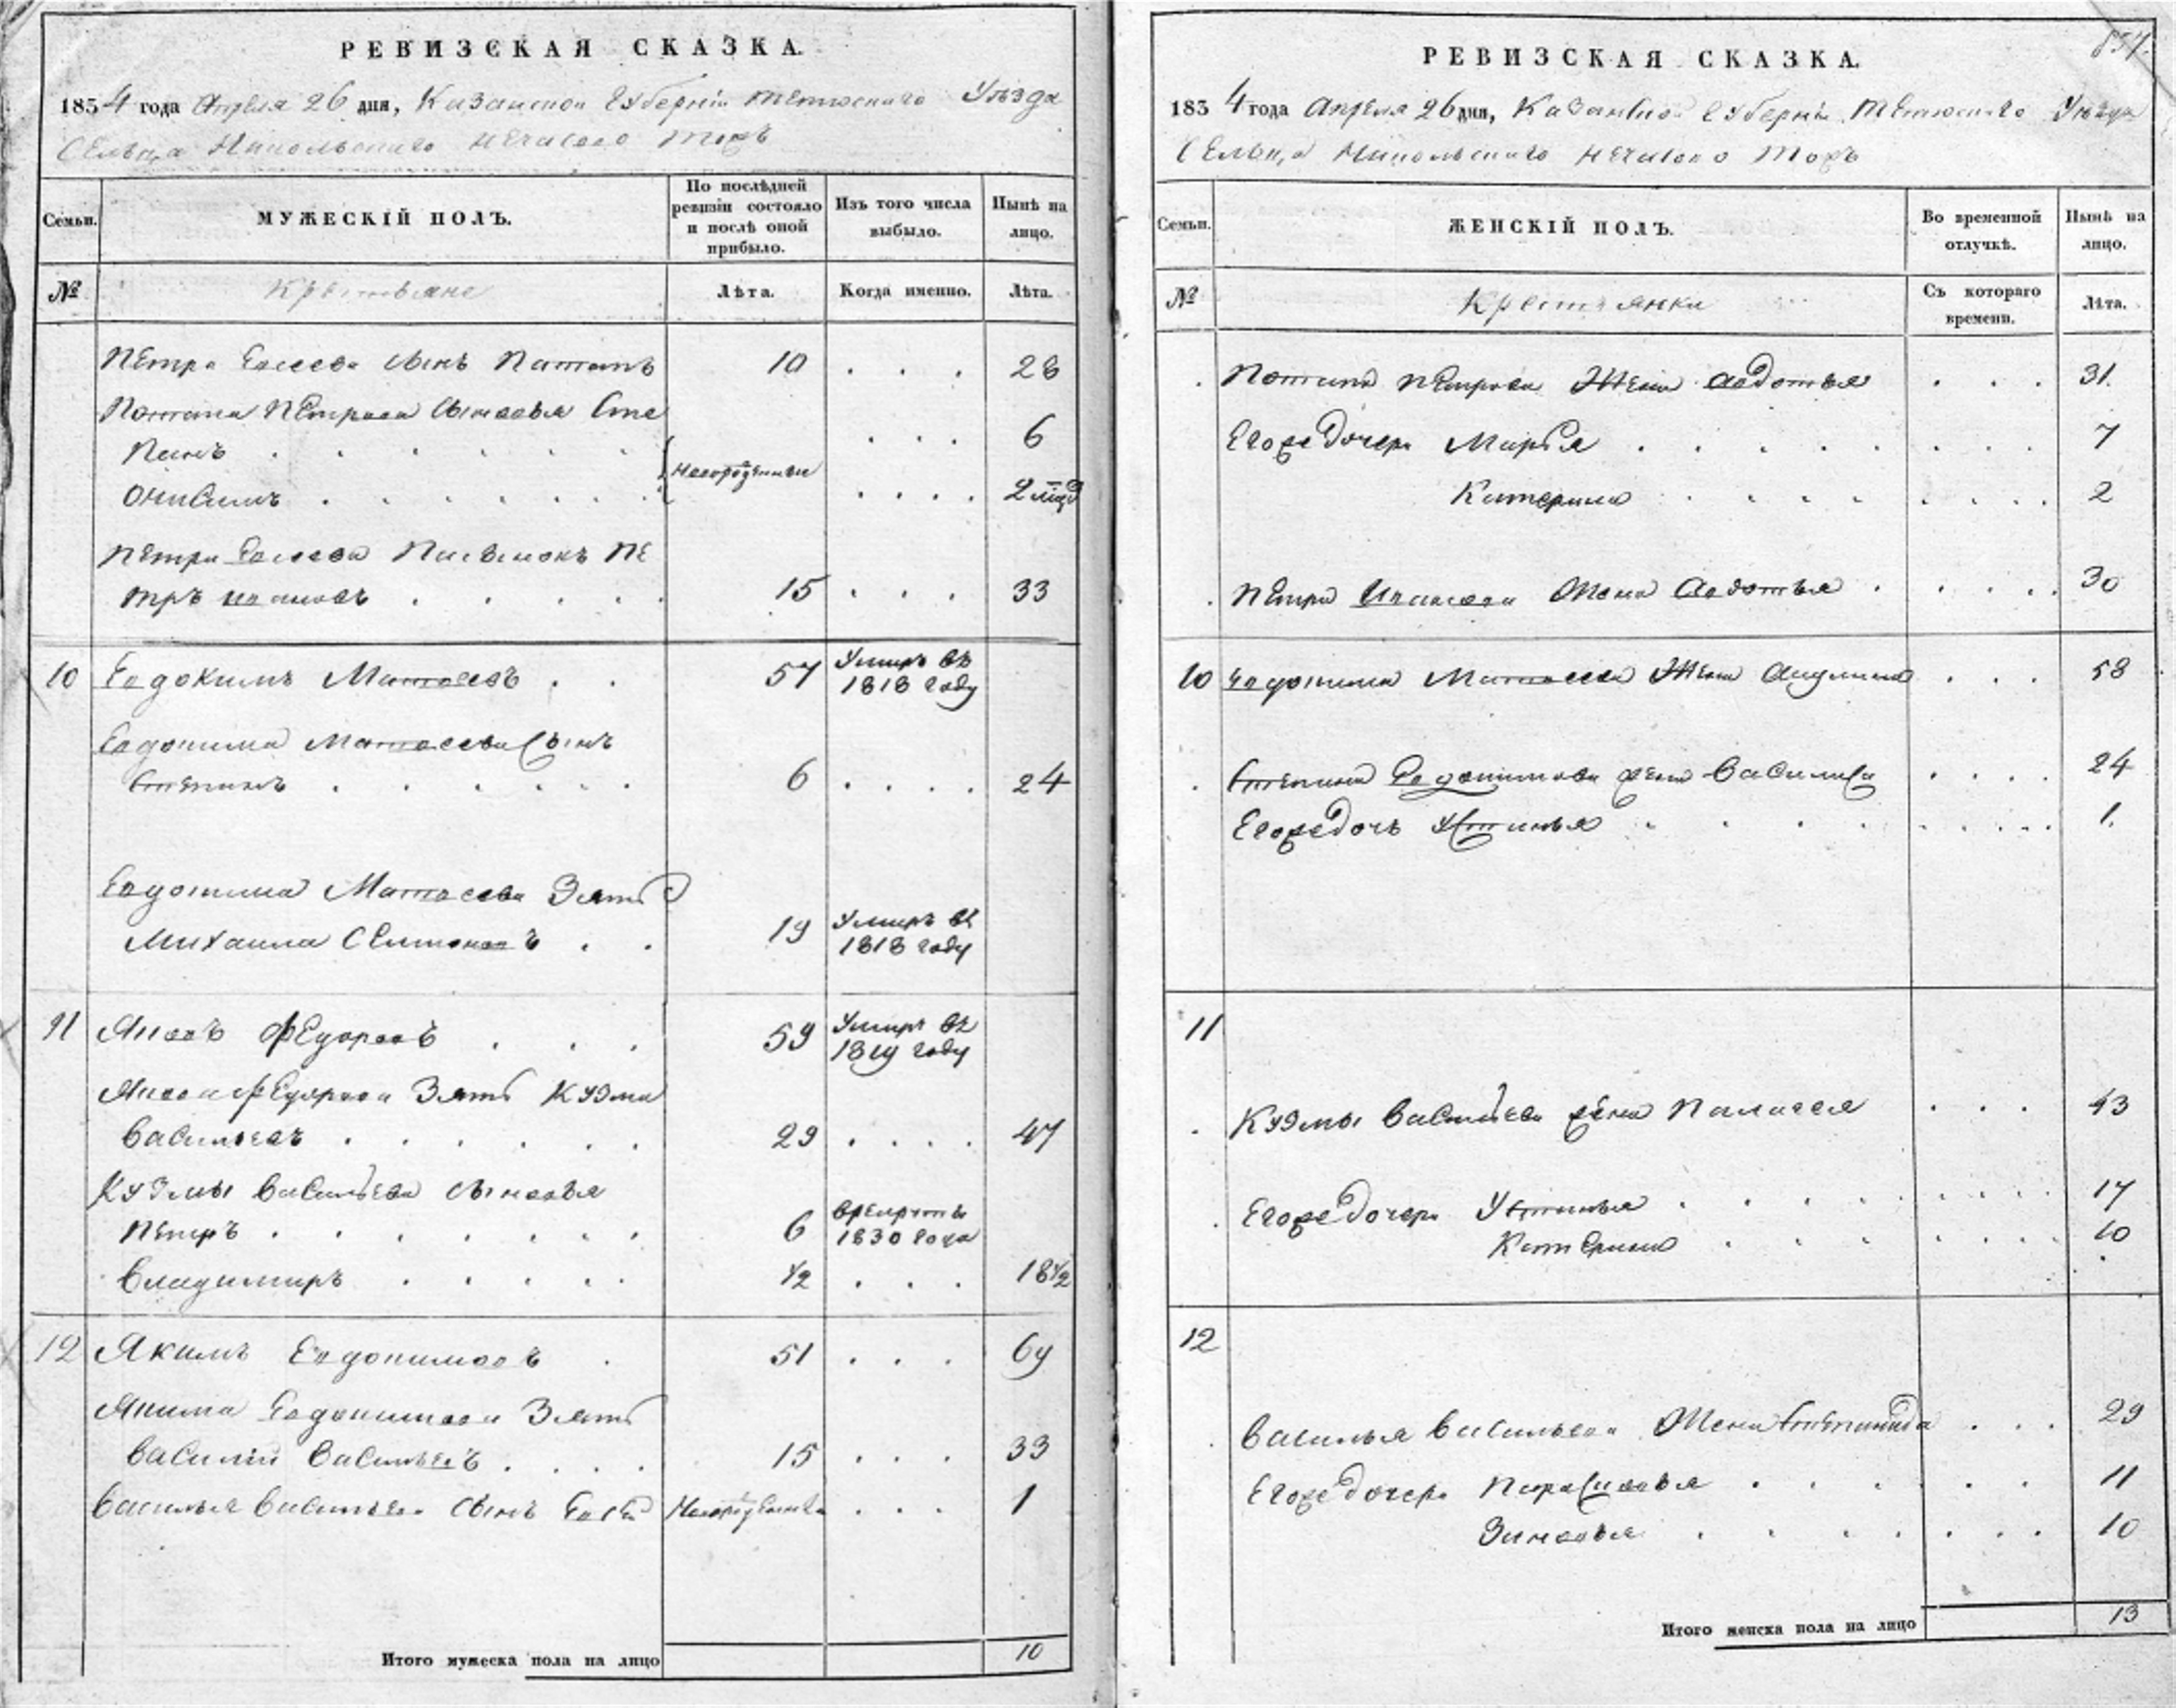 РЕВИЗСКАЯ СКАЗКА.
1834 года Апреля 26 дня, Казанской Губерніи Тетюскаго Уъзда
Сельца Никольскаго Нечасово Тожъ
Семьи.
МУЖЕСКІЙ ПОЛЪ.
По послѣдней ревизіи состояло и послѣ оной прибыло.
Изъ того числа выбыло.
Нынѣ на лицо.
№
Крестьяне
Лѣта.
Когда именно.
Лѣта.
Петра Евсеева сынъ Потапъ 10 28
Потапа Петрова сыновья Сте
панъ 6
Новорожденныи
Онисимъ 2
Петра Евсеева Пасынокъ Пе
тръ Ивановъ 15 33
10 Евдокимъ Матвеевъ 57 Умиръ въ 1818 году
Евдокима Матвеева Сынъ
Степанъ 6 24
Евдокима Матвеева Зять
Михаила Семеновъ 19 Умиръ въ 1818 году
11 Яковъ Федоровъ 59 Умиръ въ 1819 году
Якова Федорова Зять Кузма
Васильевъ 29 47
Кузмы Васильева сыновья
Петръ 6 1830 года
Владимиръ 1/2 18 1/2
12 Якимъ Евдокимовъ 51 69
Якима Евдокимова Зять
Василий Васильевъ 15 33
Василья Васильева Сынъ 1
Итого мужеска пола на лицо 10
857.
РЕВИЗСКАЯ СКАЗКА.
1834 года Апреля 26 дня, Казанской Губерніи Тетюскаго Уъзда
Сельца Никольскаго Нечасово Тожъ
Семьи.
ЖЕНСКІЙ ПОЛЪ.
Во временной отлучкѣ.
Нынѣ на лицо.
№
Крестьянки
Съ котораго времени.
Лѣта.
Потапа Петрова Жена Авдотья 31.
Егоже Дочери Марья 7
Катерина 2
Петра Иванова Жена Авдотья 30
10 Евдокима Матвеева Жена Акулина 58
Степана Евдокимова жена Василиса 24
Егоже Дочь Устинья 1.
11
Кузмы Васильева жена Палагея 43
Егоже Дочери Устинья 17
Катерина 10
12
Василья Васильева Жена Степанида 29
Егоже Дочери Парасковья 11
Зиновья 10
Итого женска пола на лицо 13